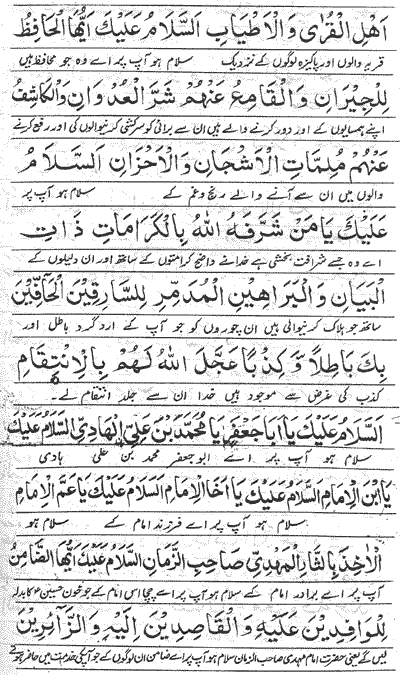 اَهْلِ الْقُرٰی وَالْاَطْیَابِ اَلسَّلَامُ عَلَیْكَ اَیُّهَا الْحَافِظُ
قریہ والوں اور پاکیزہ لوگوں کے نزدیک سلام ہو آپ پر اے وہ جو محافظ ہیں
لِلْجِیْرَانِ وَالْقَامِعُ عَنْهُمْ شَرَّ الْعُدْوَانِ وَالْکَاشِفُ
اپنے ہمسایوں کے اور دور کرنے والے ہیں ان سے برائی کو سرکشی کرنیوالوں کی اور رفع کرنے
عَنْهُمْ مُلِمَّاتِ الْاَشْجَانِ وَالْاَحْزَانِ اَلسَّلَامُ
والوں میں ان سے آنے والے رنج و غم کے سلام ہو آپ پر
عَلَیْكَ یَا مَنْ شَرَّفَهُ اللهُ بِالْکَرَامَاتِ ذَاتِ
اے وہ جسے شرافت بخشی ہے خدا نے واضح کرامتوں کے ساتھ اور ان دلیلوں کے
الْبَیَانِ وَالْبَرَاهِیْنِ الْمُدَمِّرِ لِلسَّارِقِیْنَ الْحَآفِّیْنَ
ساتھ جو ہلاک کرنیوالی ہیں ان چوروں کو جو آپ کے ارد گرد باطل اور
بِكَ بَاطِلًا وَّ کِذْبًا عَجَّلَ اللهُ لَهُمْ بِالْاِنْتِقَامِ
کذب کی غرض سے موجود ہیں خدا ان سے جلد انتقام لے۔
اَلسَّلَامُ عَلَیْكَ یَا اَبَا جَعْفَرٍ یَا مُحَمَّدَ بْنَ عَلِیٍّ الْهَادِیْ اَلسَّلَامُ عَلَیْكَ
سلام ہو آپ پر اے ابو جعفر محمد بن علی ہادی
یَا ابْنَ الْاِمَامِ اَلسَّلَامُ عَلَیْكَ یَا اَخَا الْاِمَامِ اَلسَّلَامُ عَلَیْكَ یَا عَمَّ الْاِمَامِ
سلام ہو آپ پر اے فرزند امام کے سلام ہو
الْاٰخِذِ بِالثَّارِ الْمَهْدِیِّ صَاحِبِ الزَّمَانِ اَلسَّلَامُ عَلَیْكَ اَیُّهَا الضَّامِنُ
آپ پر اے برادر امام کے سلام ہو آپ پر اے چچا اس امام کے جو خون حسینؑ کا بدلہ
لِلْوَافِدِیْنَ عَلَیْهِ وَالْقَاصِدِیْنَ اِلَیْهِ وَالزَّآئِرِیْنَ
لیں گے یعنی حضرت امام مہدی صاحب الزمان سلام ہو آپ پر اے ضامن ان لوگوں کے جو آپکی خدمت میں حاضر ہوئے